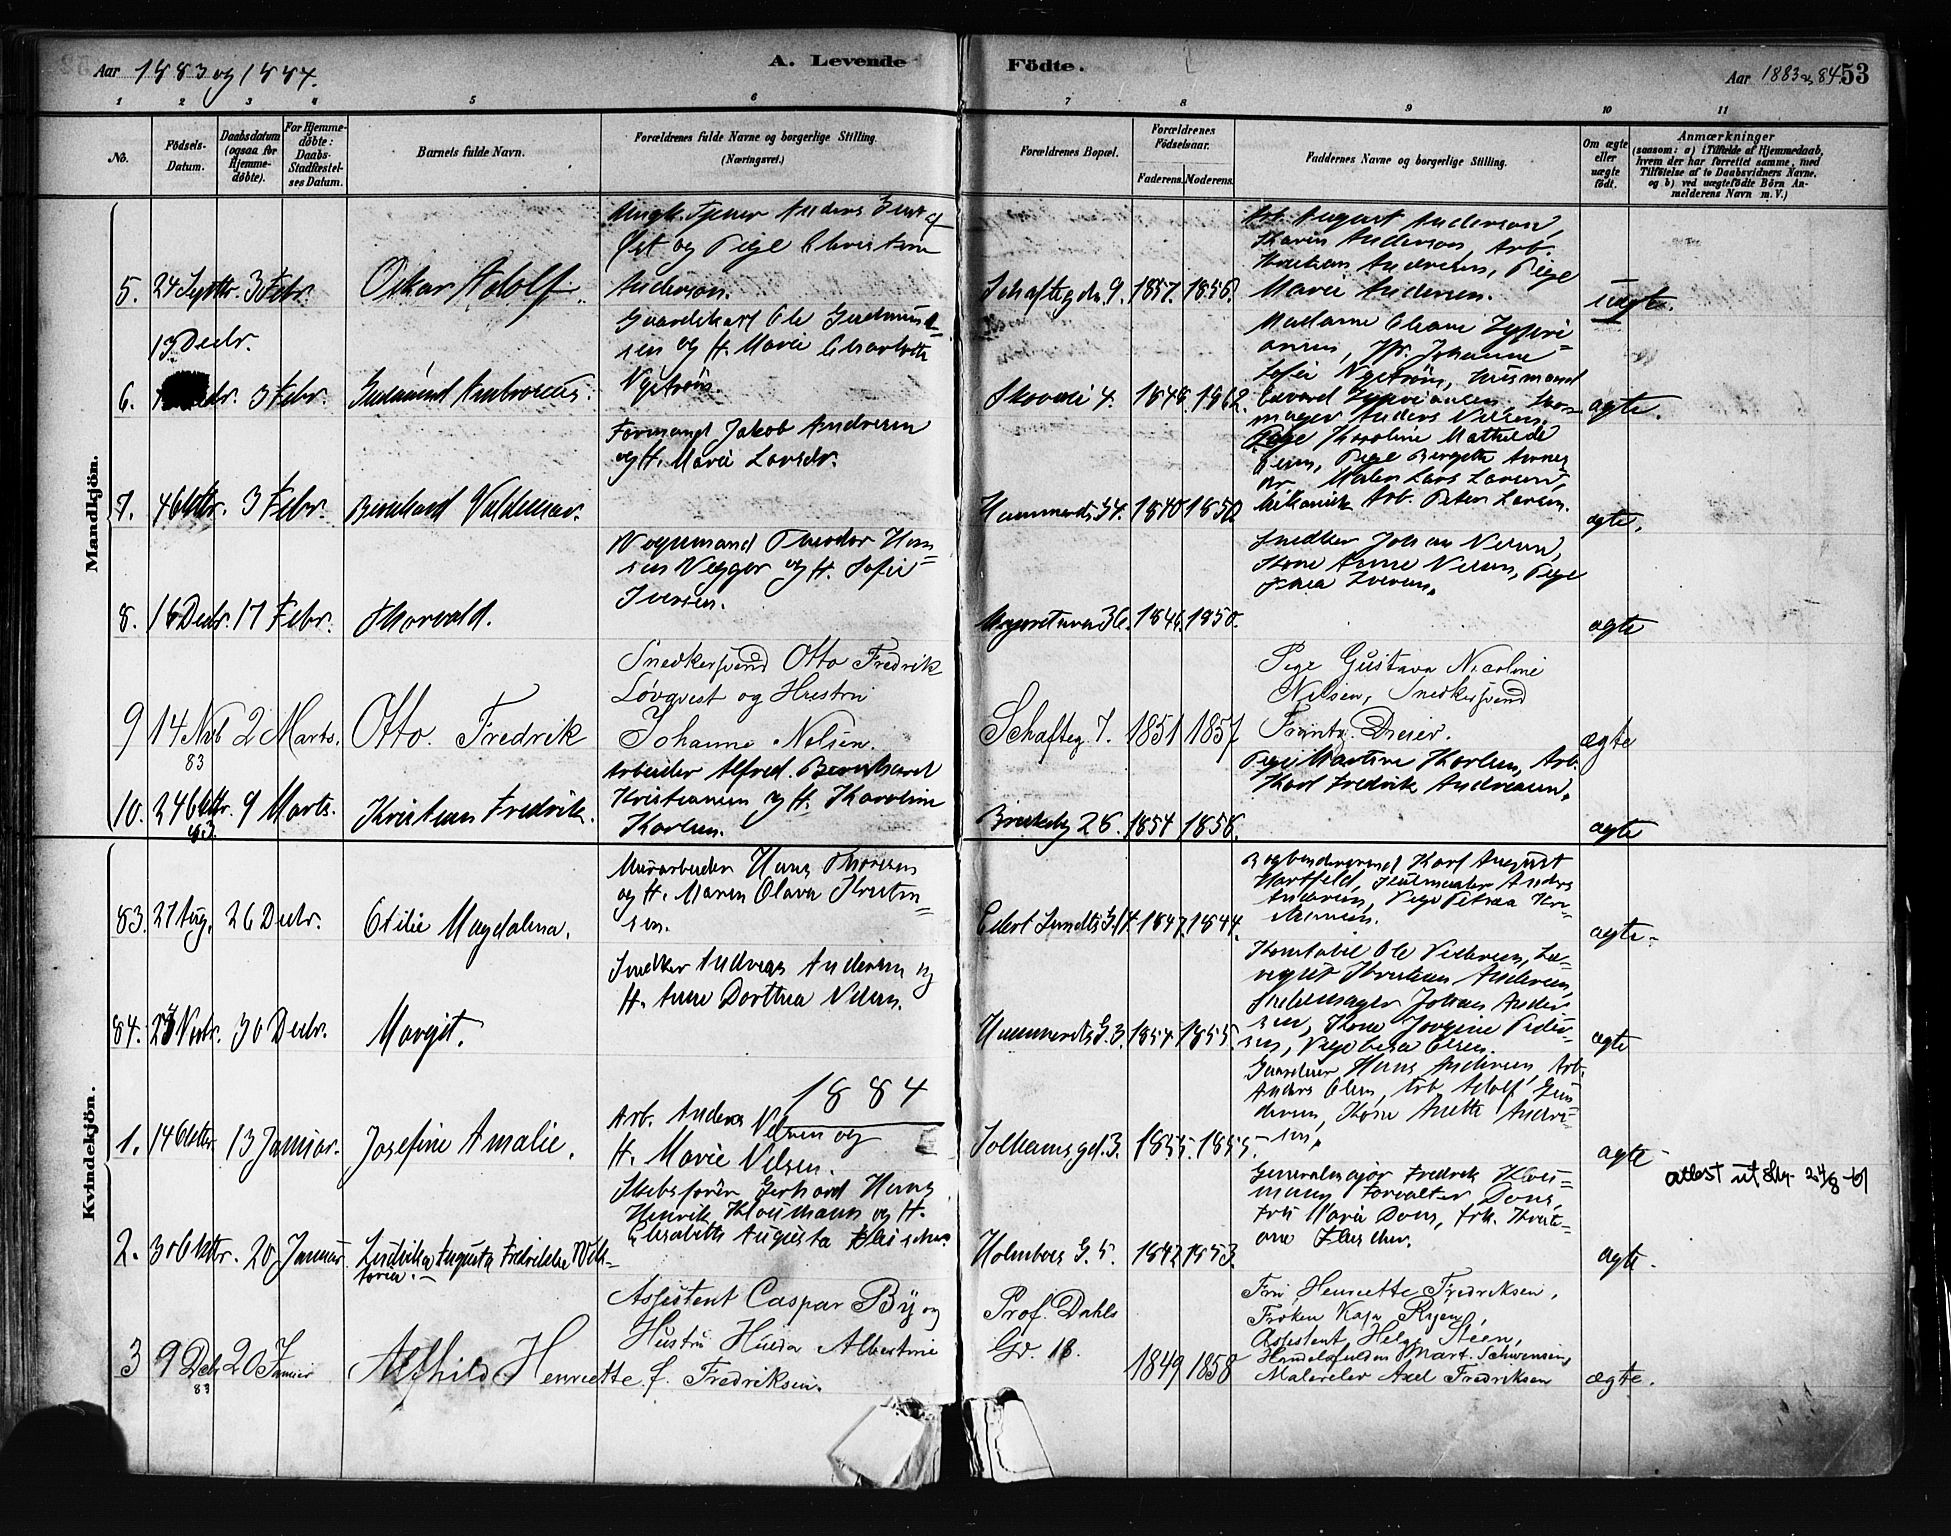 Aar 1883 og 1884.
A. Levende
Födte.
Aar 1883 og 84
53
1 2 3 4 5 6 7 8 9 10 11
No.
Födsels-Datum.
Daabsdatum (ogsaa for Hjemmedöbte).
For Hjemmedöbte: Daabs-Stadfæstelses Datum.
Barnets fulde Navn.
Forældrenes fulde Navne og borgerlige Stilling. (Næringsvei.)
Forældrenes Bopæl.
Forældrenes Födselsaar.
Faderens. Moderens.
Faddernes Navne og borgerlige Stilling.
Om ægte eller uægte födt.
Anmærkninger
(saasom: a) i Tilfælde af Hjemmedaab, hvem der har forrettet samme, med Tilföielse af to Daabsvidners Navne, og b) ved uægtefödte Börn Anmelderens Navn m. V.)
Mandkjön.
Ungk. Tjener Anders Gustaf
Öst og Pige Christine
Anderson.
5. 24 Septbr. 3 Febr. Oskar Adolf.
Schaftegdn. 9. 1857. 1856.
Arb. August Anderson,
Karin Anderson, Arb.
Andersen, Pige
Marie Andersen.
uægte.
13 Decbr.
6. 3 Febr. Gudmund Ambrosius.
Gaardskarl Ole Gudmund-
sen og H. Marie Charlotte
Nyström
Skovvei 4. 1848. 1862.
Madame Oleane Zypri-
ansen, Johanne
Sofie Nyström, Husmand
Edvard Zypriansen, Sko-
mager Anders Nilsen.
ægte.
7. 4 Oktbr. 3 Febr. Bernhard Valdemar.
Formand Jakob Andresen
og H. Marie Larsdr.
Hammersb. 34. 1840 1850.
Pige Karoline Mathilde
Pige Birgitte
Maler Lars Larsen,
Arb. Peter Larsen.
ægte.
8. 16 Decbr. 17 Febr. Thorvald.
Vognmand Theodor Han-
sen Vegger og H. Sofie
Iversen.
36. 1846. 1850.
Snedker Johan Nilsen,
Kone Anne Nilsen, Pige
Thea Iversen.
ægte
9 14 Nvb 83 2 Marts. Otto Fredrik
Snedkersvend Otto Fredrik
Lövqvist og Hustru
Johanne Nilsen.
Schafteg. 7. 1851 1857
Pige Gustava Nicoline
Nilsen, Snedkersvend
Frantz Dreier.
ægte
10. 24 Oktbr. 83 9 Marts. Kristian Fredrik.
Arbeider Alfred Bernhard
Kristiansen og H. Karoline
Karlsen.
Briskeby 26. 1854 1856.
Pige Martine Karlsen, Arb.
Karl Fredrik Andreasen.
ægte
Kvindekjön.
83. 27 Aug. 26 Decbr. Otilie Magdalena.
Murarbeider Hans Thoresen
og H. Maren Olava Kristen-
sen.
Eilert Sundts G. 14. 1847. 1844.
Bogbindersvend Karl August
Hartfeld, Anders
Andersen, Pige Petrea Kri-
stiansen.
ægte.
84. 27 Novbr. 30 Decbr. Margit.
Snedker Andreas Andersen og
H. Anne Dorthea Nilsen.
Hammersb G. 3. 1854. 1855.
Konstabel Ole Pedersen,
Kristian Andersen,
Johan Ander-
sen, Kone Jørgine Peder-
sen, Pige Olsen.
ægte
1884
1. 14 Oktbr. 13 Januar. Josefine Amalie.
Arb. Anders Nilsen og
H. Marie Nilsen.
Solhaugsgd. 3. 1855. 1855.
Gaardeier Hans Andersen, Arb.
Anders Olsen, Arb. Adolf Gun-
dersen, Kone Anette Andre-
sen.
ægte
attest utskr 24/8-61
2. 30 Oktbr. 20 Januar. Lendvika Augusta Fredrikke Vik-
toria.
Skibsfører Gerhard Hans
Henrik Kloumann og H.
Elisabeth Augusta Fleischer.
Holmboes G. 5. 1842 1853.
Generalmajor Fredrik Klou-
mann, Forvalter Dons,
Fru Marie Dons, Frk. Kristi-
ane Fleischer.
ægte.
3 9 Decb 83 20 Januar Alfhild Henriette
Assistent Caspar By og
Hustru Hulda Albertine
f. Fredriksen.
Prof. Dahls
Gd. 18. 1849 1858
Fru Henriette Fredriksen,
Frøken Kaja Ryen,
Assistent Helge Steen,
Handelsfuldm Mart. Schwensen,
Malerelev Axel Fredriksen
ægte.